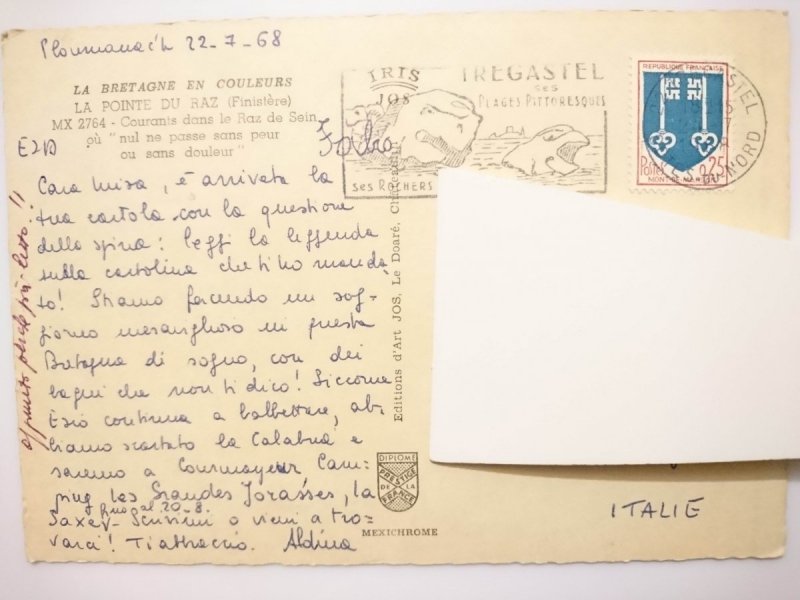 Ploumanac'h 22-7-68
LA BRETAGNE EN COULEURS
LA POINTE DU RAZ (Finistère)
MX 2764 - Courants dans le Raz de Sein
où "nul ne passe sans peur
ou sans douleur"
Cara Misa, è arrivata la
tua cartola con la questione
della spina: leggi la leggenda
sulla cartolina che ti ho manda-
to! Stiamo facendo un sog-
giorno meraviglioso in questa
Bretagna di sogno, con dei
bagni che non ti dico! Siccome
Esio continua a balbettare, ab-
biamo scartato la Calabria e
saremo a Courmayeur Cam-
ping les Grandes Jorasses, la
fino al 20-8.
o vieni a tro-
varci! Ti abbraccio. Aldina
Fabio
Editions d'Art JOS, Le Doaré, Châteaulin
DIPLOME
PRESTIGE
DE LA
FRANCE
MEXICHROME
IRIS
JOS
TREGASTEL
SES
PLAGES PITTORESQUES
SES ROCHERS
REPUBLIQUE FRANÇAISE
Postes 0,25
MONT-DE-MARSAN
DU NORD
ITALIE